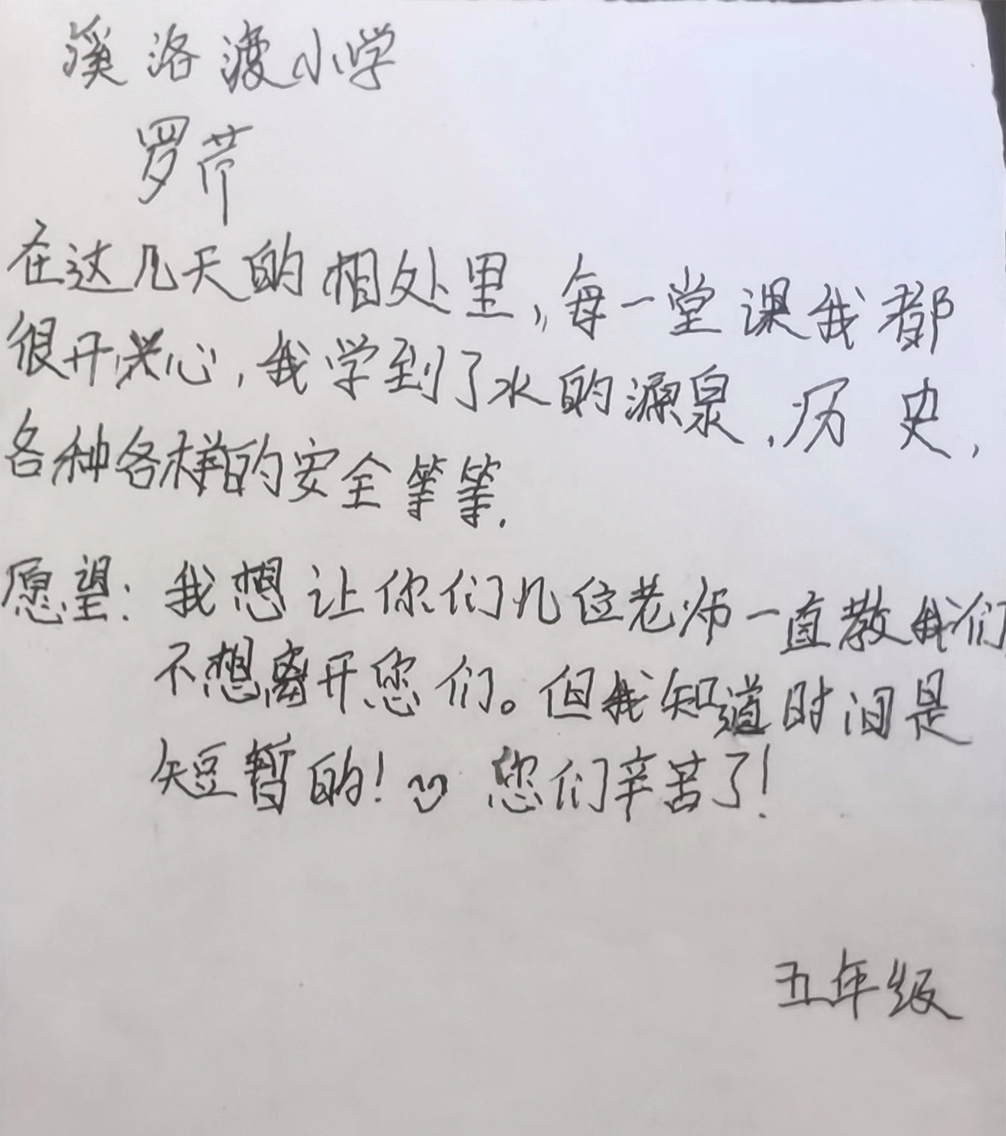 溪洛渡小学
罗芹
在这几天的相处里,每一堂课我都
很开心,我学到了水的源泉、历史,
各种各样的安全等等.
愿望:我想让你们几位老师一直教我们
不想离开您们。但我知道时间是
短暂的! 您们辛苦了!
五年级